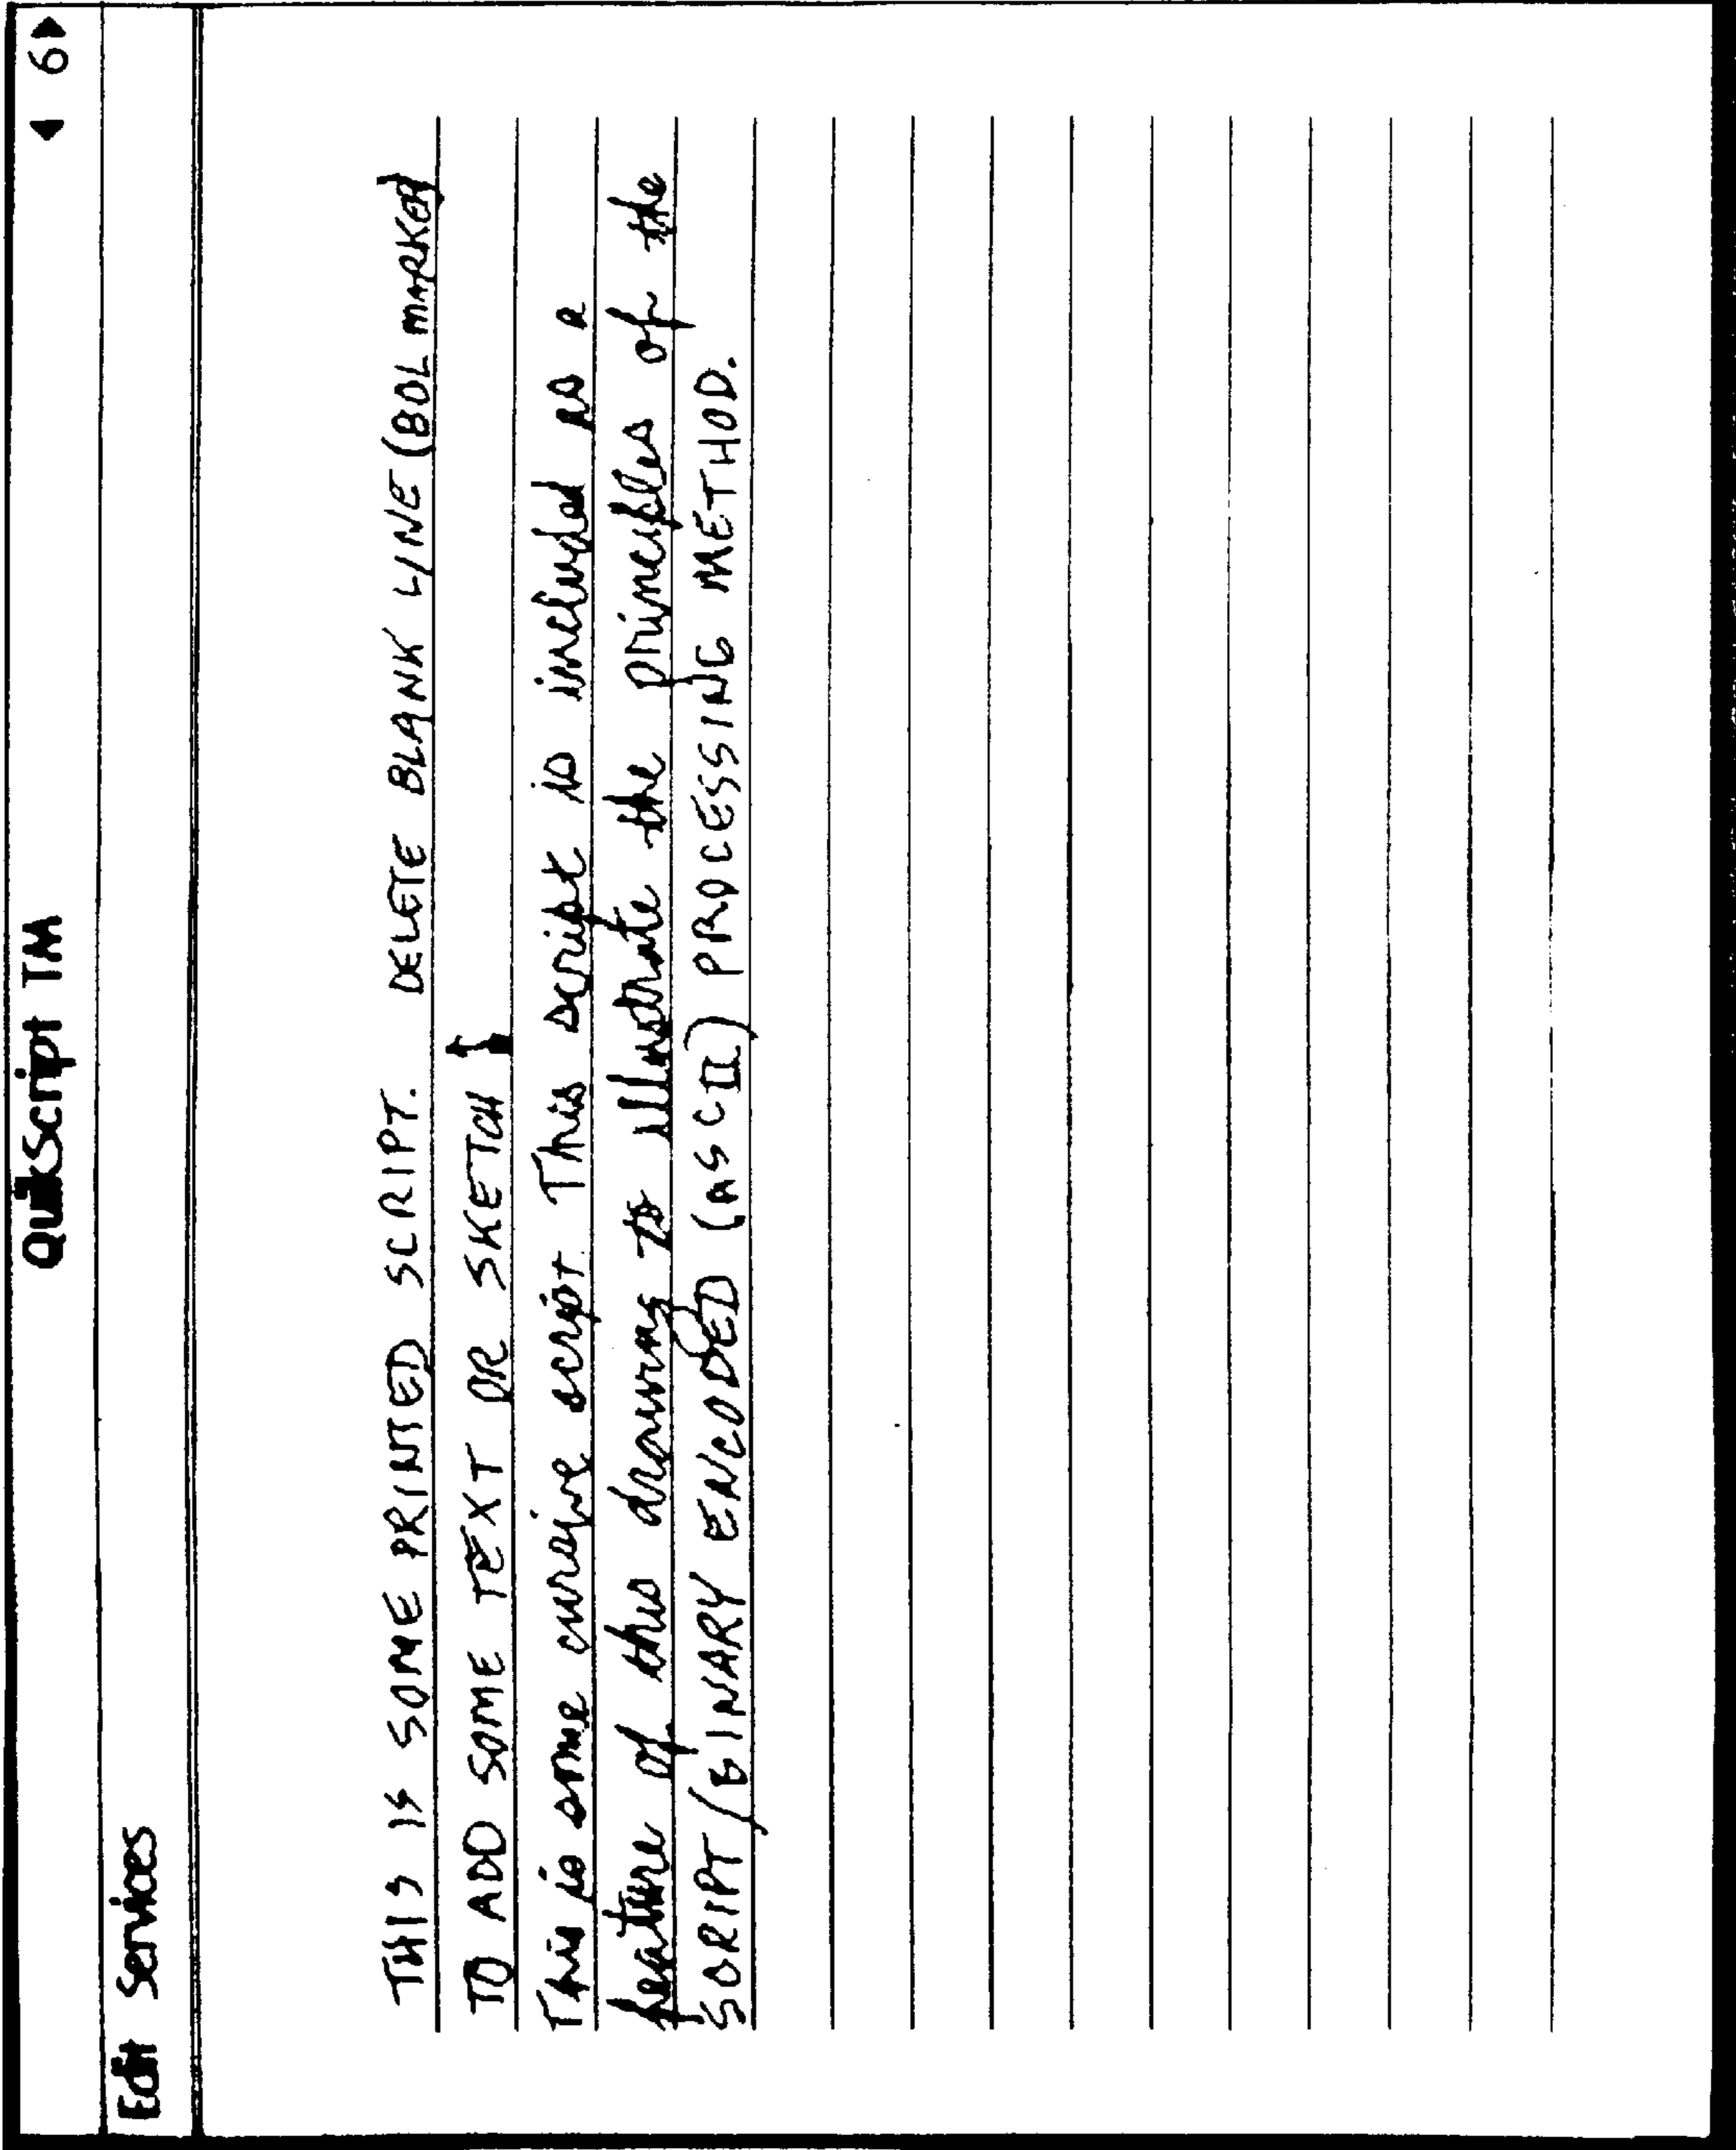 QuikScript TM ◀ 6 ▶
Edit Services
THIS IS SOME PRINTED SCRIPT. DELETE BLANK LINE (BOL MARKED
TO ADD SOME TEXT OR SKETCH
This is some cursive script. This script is included as a
feature of this drawing to illustrate the principles of the
SCRIPT/BINARY ENCODED (ASCII) PROCESSING METHOD.